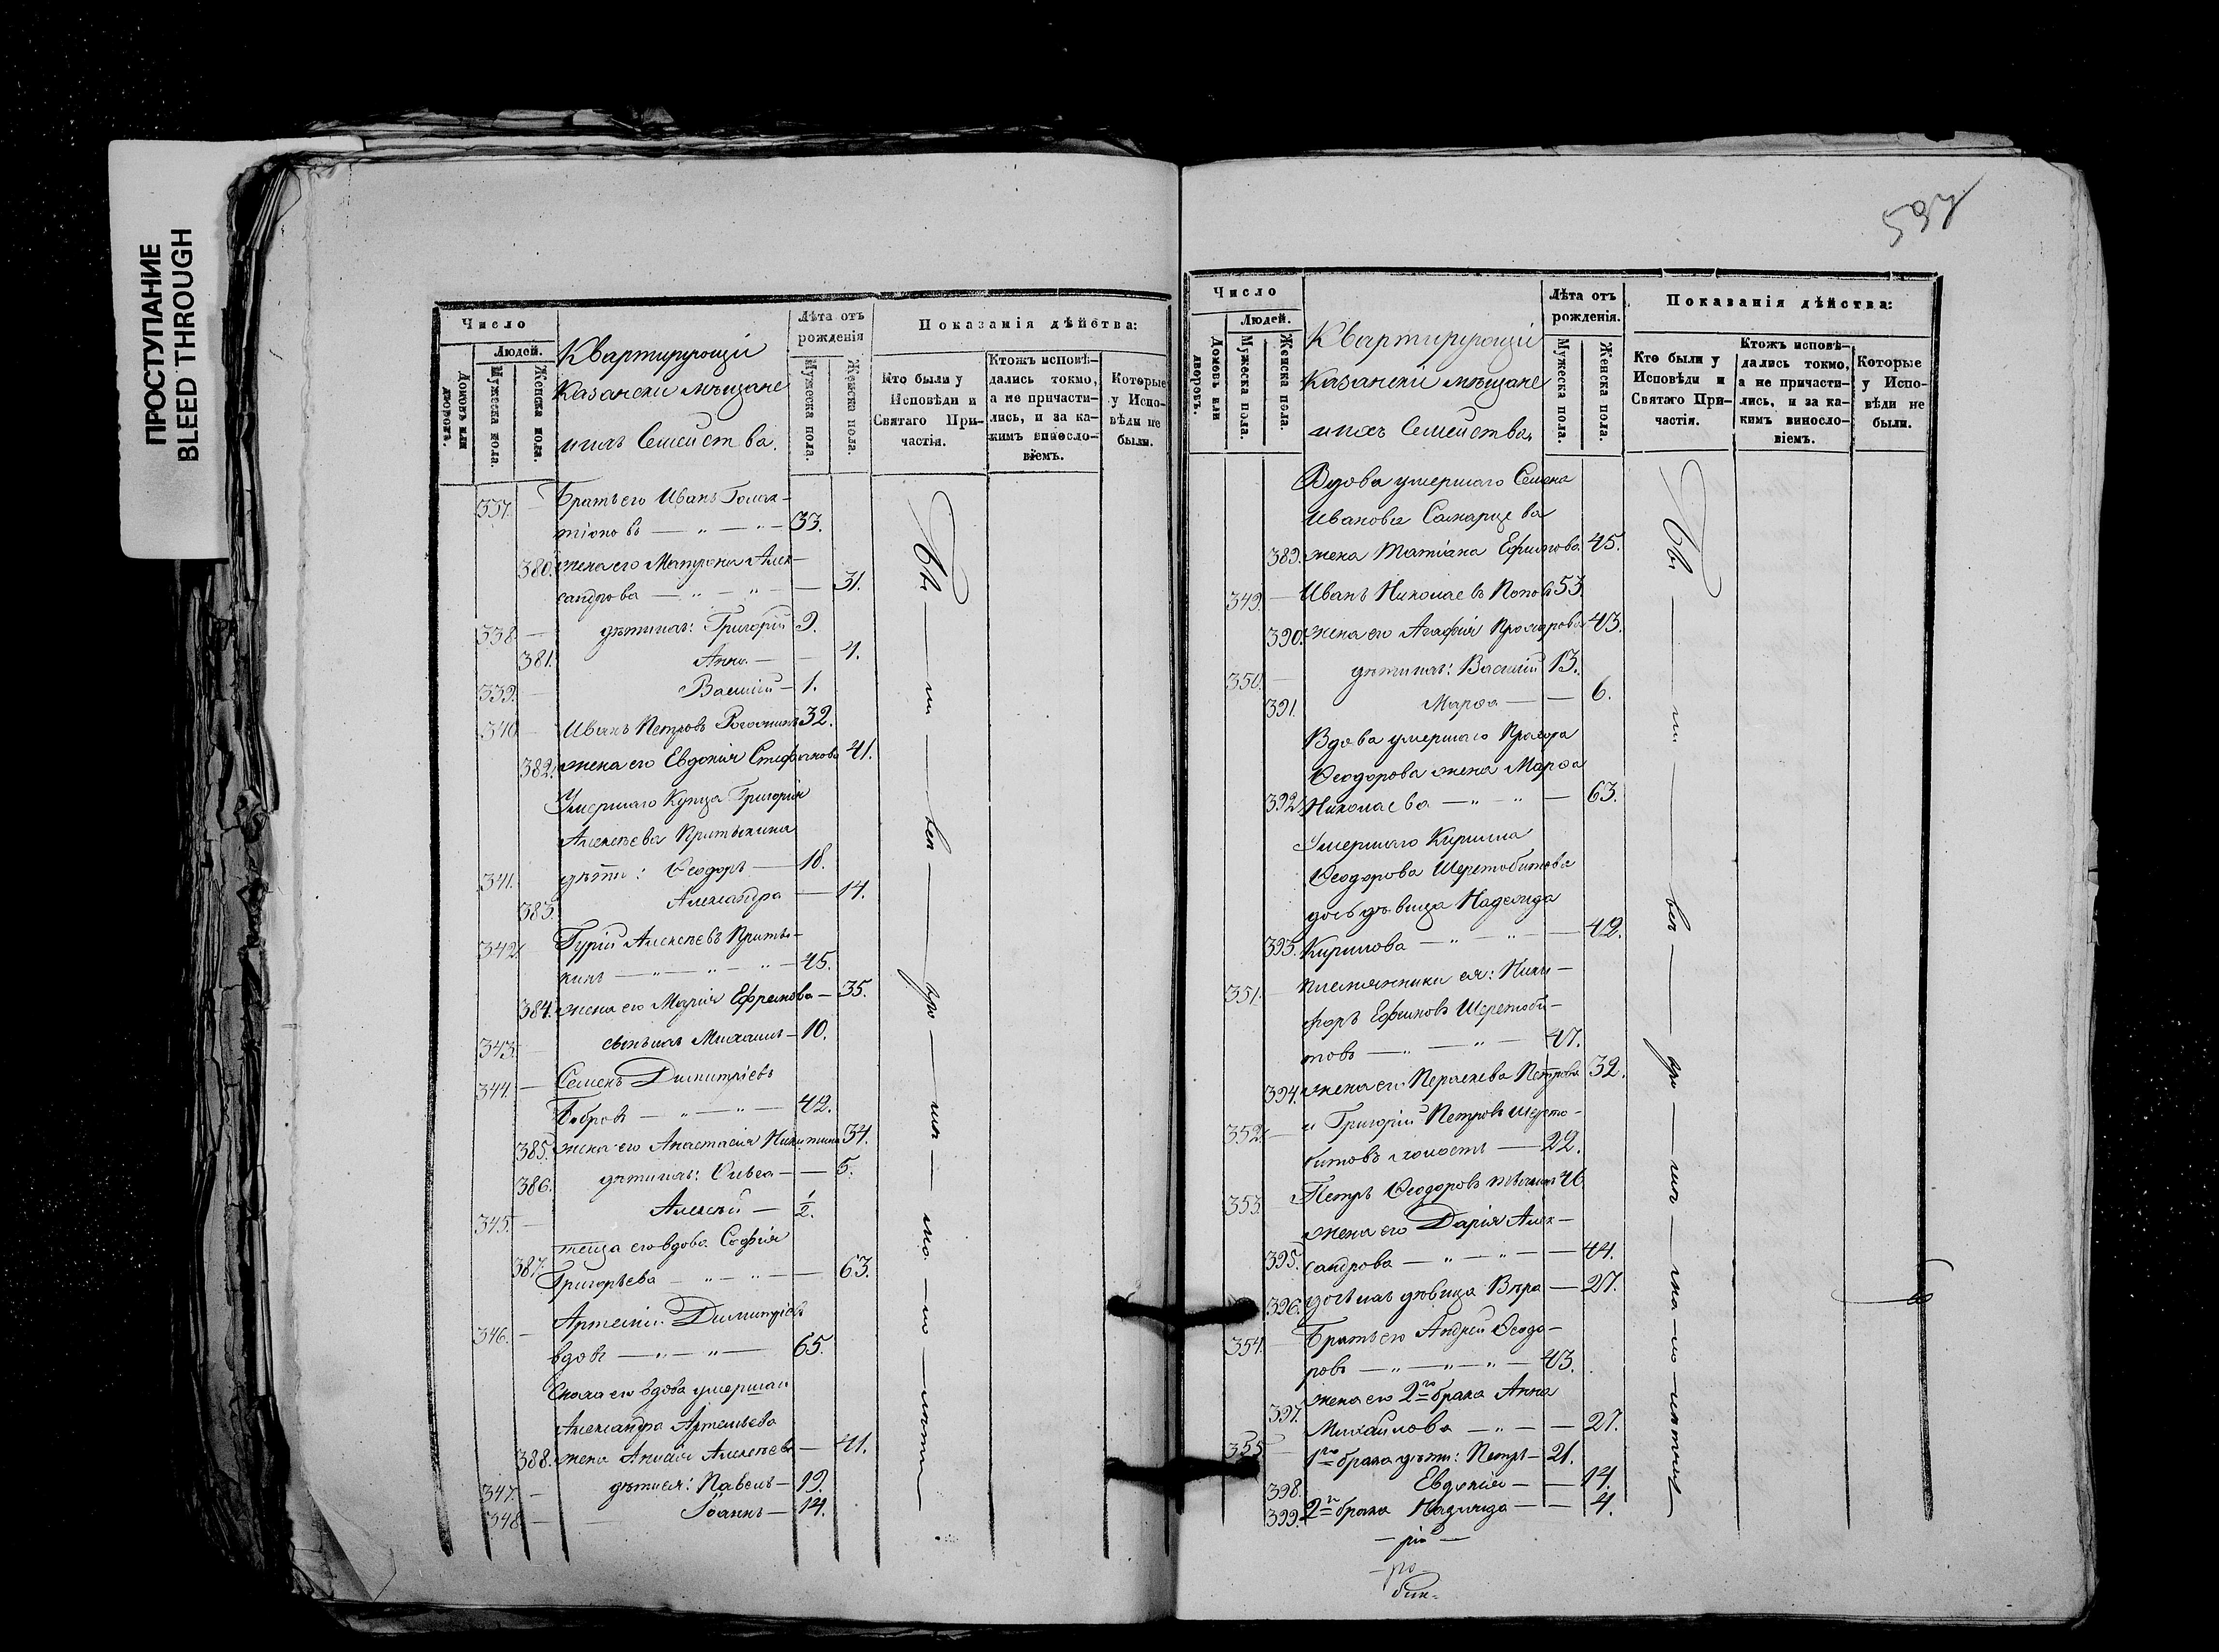 ПРОСТУПАНИЕ
BLEED THROUGH
Число
Людей.
Домовъ или дворовъ.
Мужеска пола.
Женска пола.
Квартирующіи
Казански мѣщане
и ихъ Семейства.
Лѣта отъ рожденія
Мужеска пола.
Женска пола.
Показанія дѣйства:
Кто были у Исповѣди и Святаго Причастія.
Ктожъ исповѣдались токмо, а не причастились, и за какимъ винословіемъ.
Которые у Исповѣди не были.
337. Братъ его Иванъ
— 33.
380. жена его Матрона Алек-
сандрова — 31.
338. дѣти ихъ: Григорій 9.
381. Анна — 4.
339. Василій — 1.
340. Иванъ Петровъ 32.
382. жена его Евдокія Стефанова 41.
Умершаго Купца Григорія
Алексѣева Притыкина
341. дѣти: Ѳеодоръ — 18.
383. Александра — 14.
342. Гурій Алексѣевъ Приты-
кинъ — 45.
384. жена его Марія Ефремова — 35.
343. сынъ ихъ Михаилъ — 10.
344. Семенъ Димитріевъ
Бобровъ — 42.
385. жена его Анастасія Никитина 34.
386. дѣти ихъ: — 5.
345. Алексѣй — 1/2.
теща его вдова Софія
387. Григорьева — 63.
346. Артемій Димитріевъ
вдовъ — 65.
Сноха его вдова умершаго
Александра Артемьева
388. жена Алексѣева — 41.
347. дѣти ея: Павелъ — 19.
348. Іоаннъ — 14.
597
Число
Людей.
Домовъ или дворовъ.
Мужеска пола.
Женска пола.
Квартирующіи
Казанскіи мѣщане
и ихъ Семейства.
Лѣта отъ рожденія.
Мужеска пола.
Женска пола.
Показанія дѣйства:
Кто были у Исповѣди и Святаго Причастія.
Ктожъ исповѣдались токмо, а не причастились, и за какимъ винословіемъ.
Которые у Исповѣди не были.
Вдова умершаго Семена
Иванова Самарцева
389. жена Татіана Ефимова 45.
349. Иванъ Николаевъ Поповъ 53.
390. жена его Агафія 43.
350. дѣти ихъ: Василій 13.
391. Марѳа — 6.
Вдова умершаго
Ѳеодорова жена Марѳа
392. Николаева — 63.
Умершаго Кирилла
Ѳеодорова Шерстобитова
дочь дѣвица Надежда
393. Кирилова — 42.
351. племянники ея: Ники-
форъ Ефимовъ Шерстоби-
товъ — 47.
394. жена его Параскева Петрова 32.
352. и Григорій Петровъ Шерсто-
битовъ холостъ — 22.
353. Петръ Ѳеодоровъ 46
жена его Дарія Алек-
395. сандрова — 44.
396. дочь ихъ дѣвица Вѣра — 27.
354. Братъ его Андрей Ѳеодо-
ровъ — 43.
жена его 2го брака Анна
397. Михайлова — 27.
355. 1го брака дѣти: Петръ — 21.
398. Евдокія — 14.
399. 2го брака Надежда — 4.